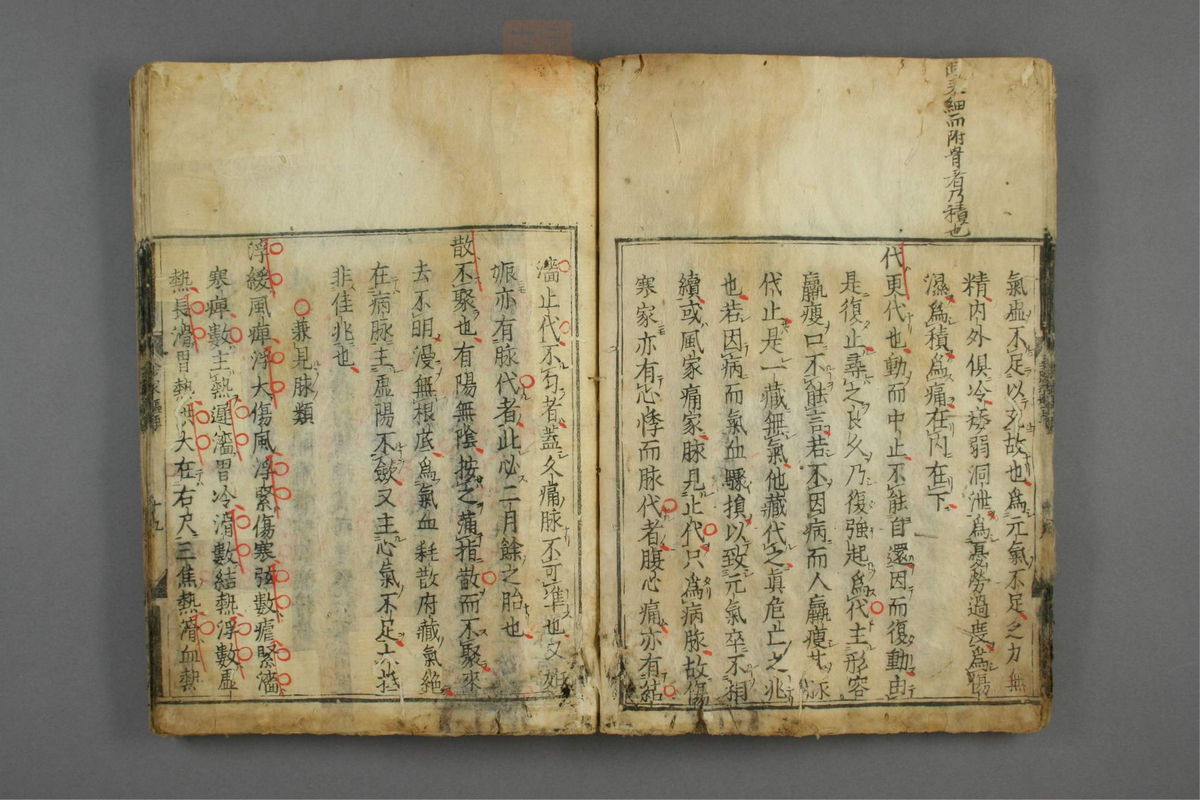 細而附骨者乃積也
氣虛不足以故也爲元氣不足之力無
精内外俱冷痿弱洞泄爲憂勞過度爲傷
濕爲積爲痛在内在下
代更代也動而中止不能自還因而復動由
是復止尋之良久乃復強起爲代主形容
羸瘦口不能言若不因病而人羸瘦其脉
代止是一藏無氣他藏代之眞危亡之兆
也若因病而氣血驟損以致元氣卒不相
續或風家痛家脉見止代只爲病脉故傷
寒家亦有心悸而脉代者腹心痛亦有結
濇止代不匀者蓋久痛脉不可準也又妊
娠亦有脉代者此必二月餘之胎也
散不聚也有陽無陰按之滿指散而不聚來
去不明漫無根底爲氣血耗散府藏氣絶
在病脉主虛陽不斂又主心氣不足亦
非佳兆也
○兼見脉類
浮緩風痺浮大傷風浮緊傷寒弦數瘧緊濇
寒痺數主熱遲濇胃冷滑數結熱浮數虛
熱長滑胃熱大在右尺三焦熱滑血熱